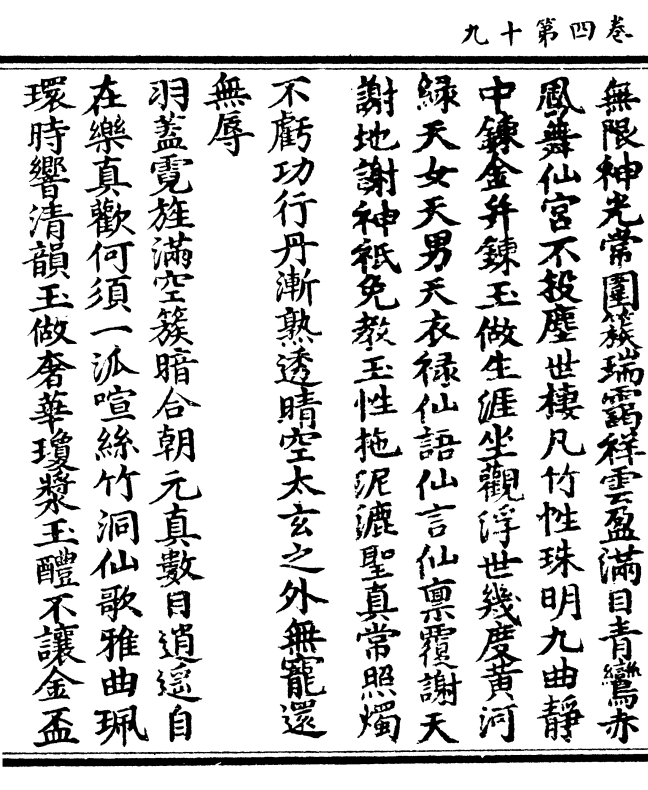 卷四第十九
無限神光常圍簇瑞靄祥雲盈滿目青鸞赤
鳳舞仙宮不投塵世棲凡竹性珠明九曲靜
中鍊金并鍊玉做生涯坐觀浮世幾度黄河
緑天女天男天衣禄仙語仙言仙禀覆謝天
謝地謝神祇免教玉性拖泥漉聖真常照燭
不虧功行丹漸熟透晴空太玄之外無寵還
無辱
羽葢霓旌滿空簇暗合朝元真數目逍遥自
在樂真歡何須一派喧絲竹洞仙歌雅曲珮
環時響清韻玉做奢華瓊漿玉醴不讓金盃